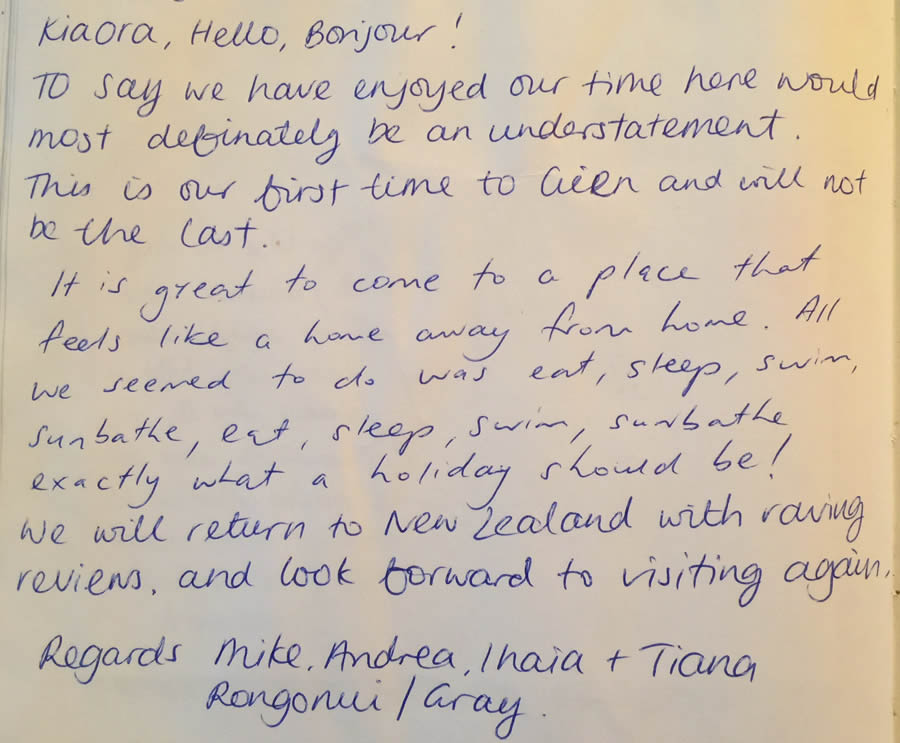 Kiaora, Hello, Bonjour!
To say we have enjoyed our time here would
most definately be an understatement.
This is our first time to Gien and will not
be the last.
It is great to come to a place that
feels like a home away from home. All
we seemed to do was eat, sleep, swim,
sunbathe, eat, sleep, swim, sunbathe
exactly what a holiday should be!
We will return to New Zealand with raving
reviews, and look forward to visiting again.
Regards Mike, Andrea, Ihaia + Tiana
Rongonui / Gray.